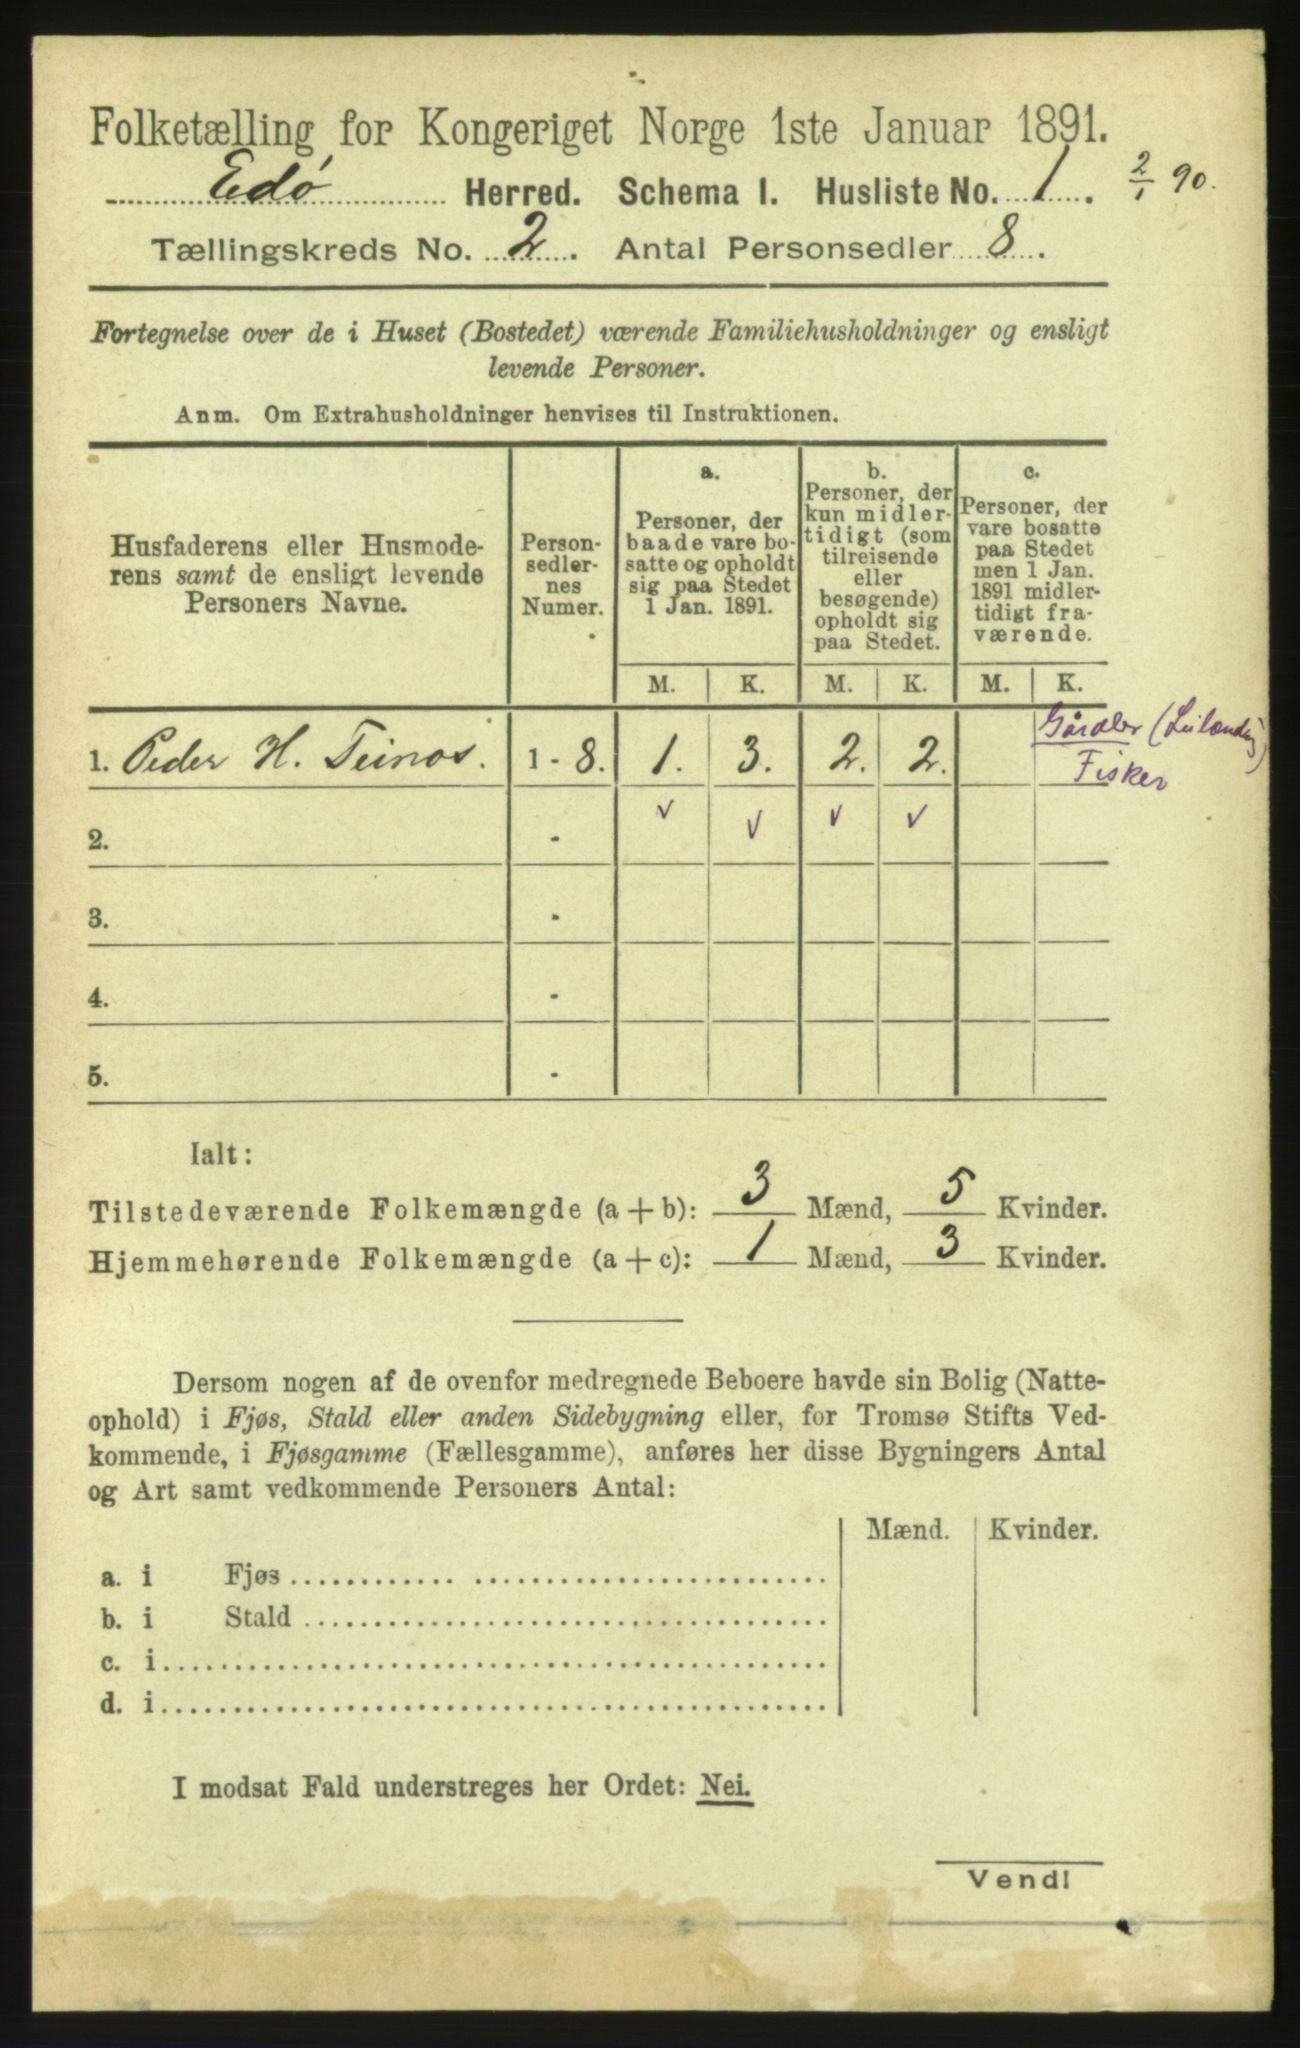 Folketælling for Kongeriget Norge 1ste Januar 1891.
Edø Herred. Schema I. Husliste No. 1. 2/1 90.
Tællingskreds No. 2. Antal Personsedler 8.
Fortegnelse over de i Huset (Bostedet) værende Familiehusholdninger og ensligt
levende Personer.
Anm. Om Extrahusholdninger henvises til Instruktionen.
Husfaderens eller Husmode-
rens samt de ensligt levende
Personers Navne.
Person-
sedler-
nes
Numer.
a.
Personer, der
baade vare bo-
satte og opholdt
sig paa Stedet
1 Jan. 1891.
b.
Personer, der
kun midler-
tidigt (som
tilreisende
eller
besøgende)
opholdt sig
paa Stedet.
c.
Personer, der
vare bosatte
paa Stedet
men 1 Jan.
1891 midler-
tidigt fra-
værende.
M. K. M. K. M. K.
1. Peder H. Teinos. 1 - 8. 1. 3. 2. 2.
Gårdbr (Leilænding)
Fisker
2. - v v v v
3. -
4. -
5. -
Ialt:
Tilstedeværende Folkemængde (a + b): 3 Mænd, 5 Kvinder.
Hjemmehørende Folkemængde (a + c): 1 Mænd, 3 Kvinder.
Dersom nogen af de ovenfor medregnede Beboere havde sin Bolig (Natte-
ophold) i Fjøs, Stald eller anden Sidebygning eller, for Tromsø Stifts Ved-
kommende, i Fjøsgamme (Fællesgamme), anføres her disse Bygningers Antal
og Art samt vedkommende Personers Antal:
Mænd. Kvinder.
a. i Fjøs
b. i Stald
c. i
d. i
I modsat Fald understreges her Ordet: Nei.
Vend!